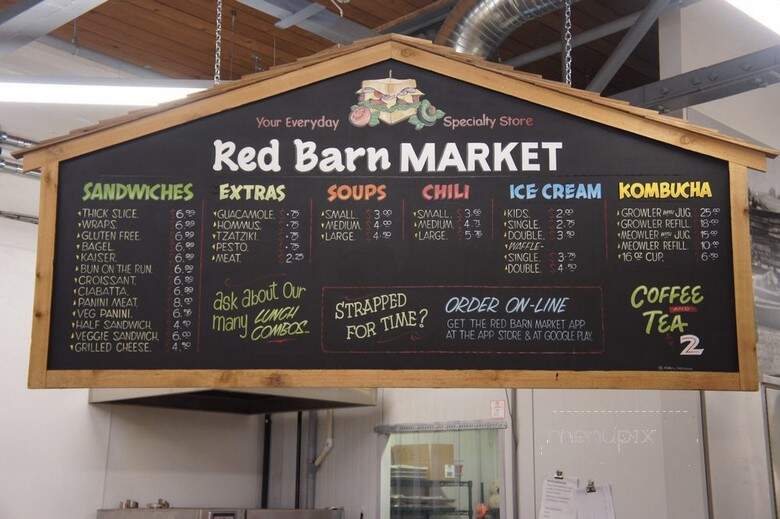 Your Everyday Specialty Store
Red Barn MARKET
SANDWICHES
THICK SLICE. 6.99
WRAPS. 6.99
GLUTEN FREE. 6.99
BAGEL. 6.99
KAISER. 6.99
BUN ON THE RUN. 6.99
CROISSANT. 6.99
CIABATTA. 6.99
PANINI MEAT.
VEG PANINI.
HALF SANDWICH.
VEGGIE SANDWICH.
GRILLED CHEESE.
EXTRAS
GUACAMOLE. .75
HOMMUS. .75
TZATZIKI. .75
PESTO. .75
MEAT. 2.25
SOUPS
SMALL. 3.99
MEDIUM. 4.99
LARGE. 4.50
CHILI
SMALL.
MEDIUM.
LARGE.
ICE CREAM
KIDS. 2.99
SINGLE. 2.75
DOUBLE. 3.50
-WAFFLE-
SINGLE. 3.75
DOUBLE. 4.50
KOMBUCHA
GROWLER JUG. 25.00
GROWLER REFILL.
MEOWLER JUG.
MEOWLER REFILL.
16 oz CUP.
ask about Our
many LUNCH
COMBOS.
STRAPPED
FOR TIME?
ORDER ON-LINE
GET THE RED BARN MARKET APP
AT THE APP STORE & AT GOOGLE PLAY.
COFFEE
AND
TEA
2
menupix